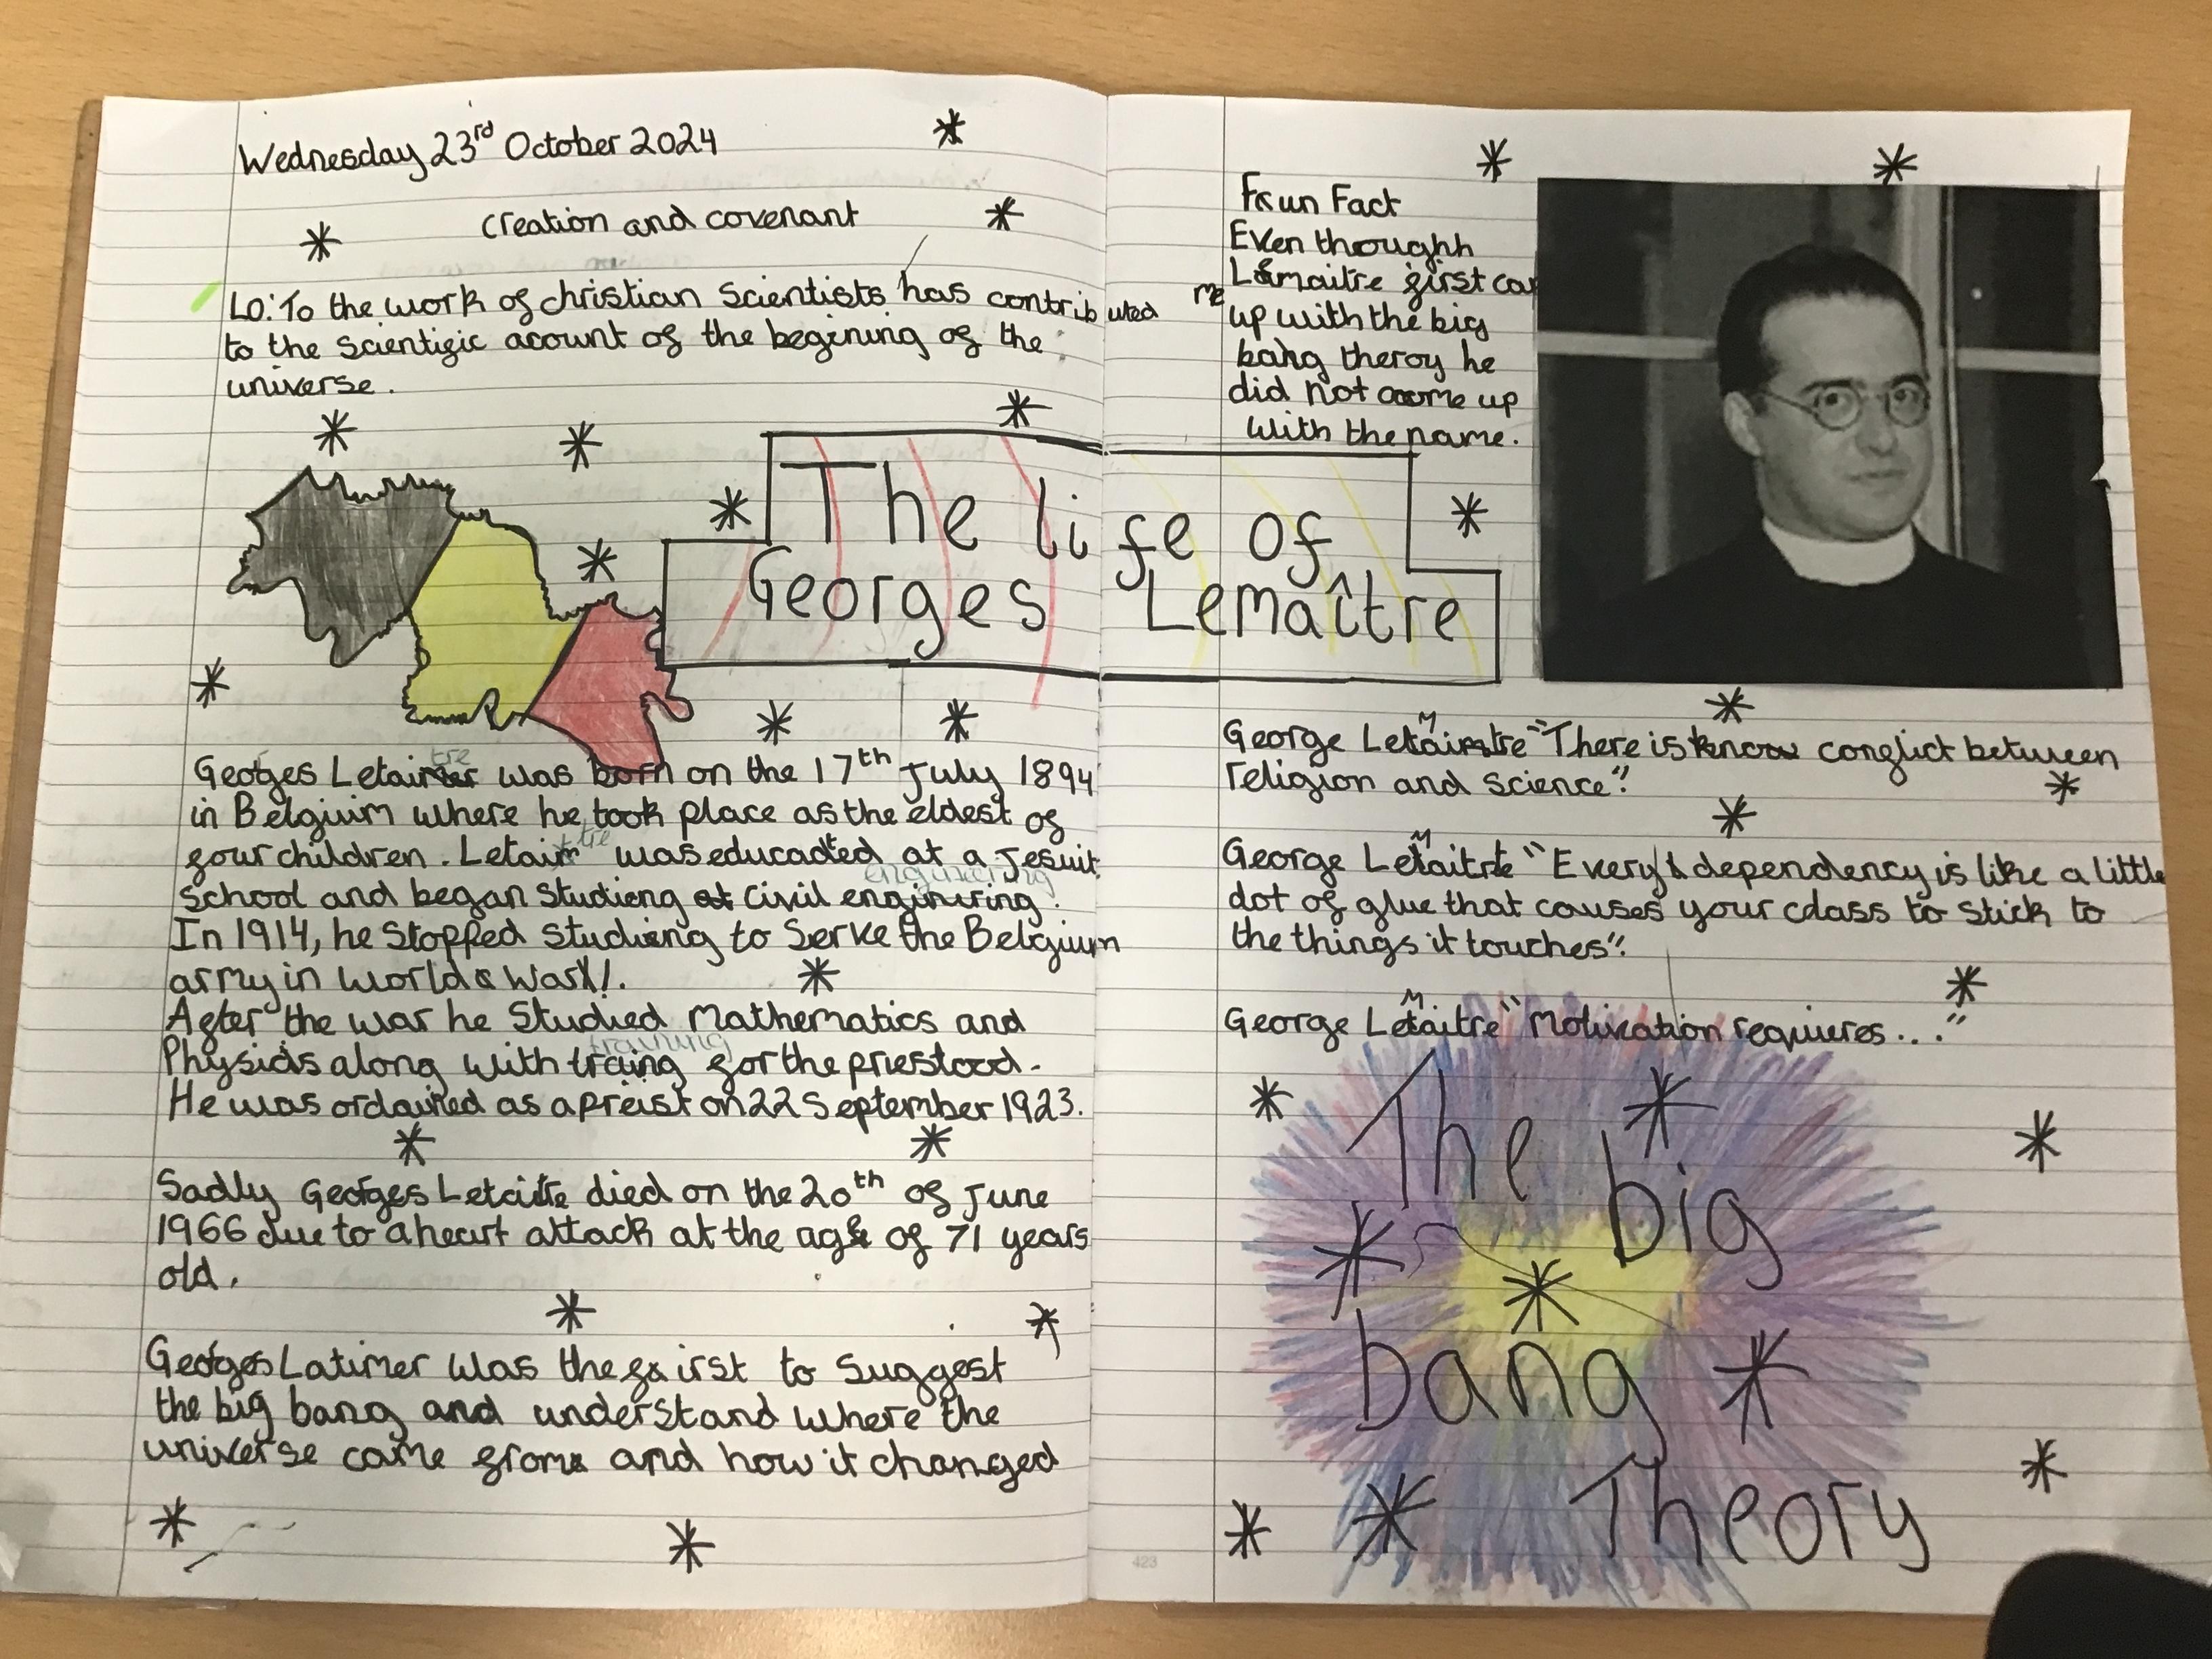 Wednesday 23rd October 2024
Creation and covenant
LO: To the work of christian scientists has contributed
to the scientific acount of the begining of the
universe.
The life of
Georges Lemaître
Georges Letaitre was born on the 17th July 1894
in Belgium where he took place as the eldest of
four children. Letaitre was educated at a Jesuit
school and began studieng civil enginering.
engineering
In 1914, he stopped studieng to serve the Belgium
army in World War 1.
After the war he studied Mathematics and
training
Physics along with traing for the priestood.
He was ordained as a preist on 22 September 1923.
Sadly Georges Letaitre died on the 20th of June
1966 due to a heart attack at the age of 71 years
old.
Georges Latimer was the first to suggest
the big bang and understand where the
universe came from and how it changed
Fun Fact
Even thoughh
Lemaitre first came
up with the big
bang theroy he
did not come up
with the name.
George Lemaitre "There is no conflict between
religion and science".
George Lemaitre "Every dependency is like a little
dot of glue that causes your class to stick to
the things it touches".
George Lemaitre "Motivation requieres..."
The big
bang
Theory
423